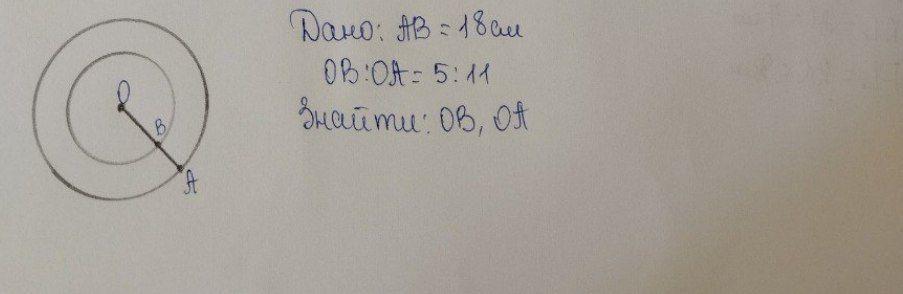 Дано: AB = 18 см
OB:OA = 5:11
Знайти: OB, OA
O
B
A